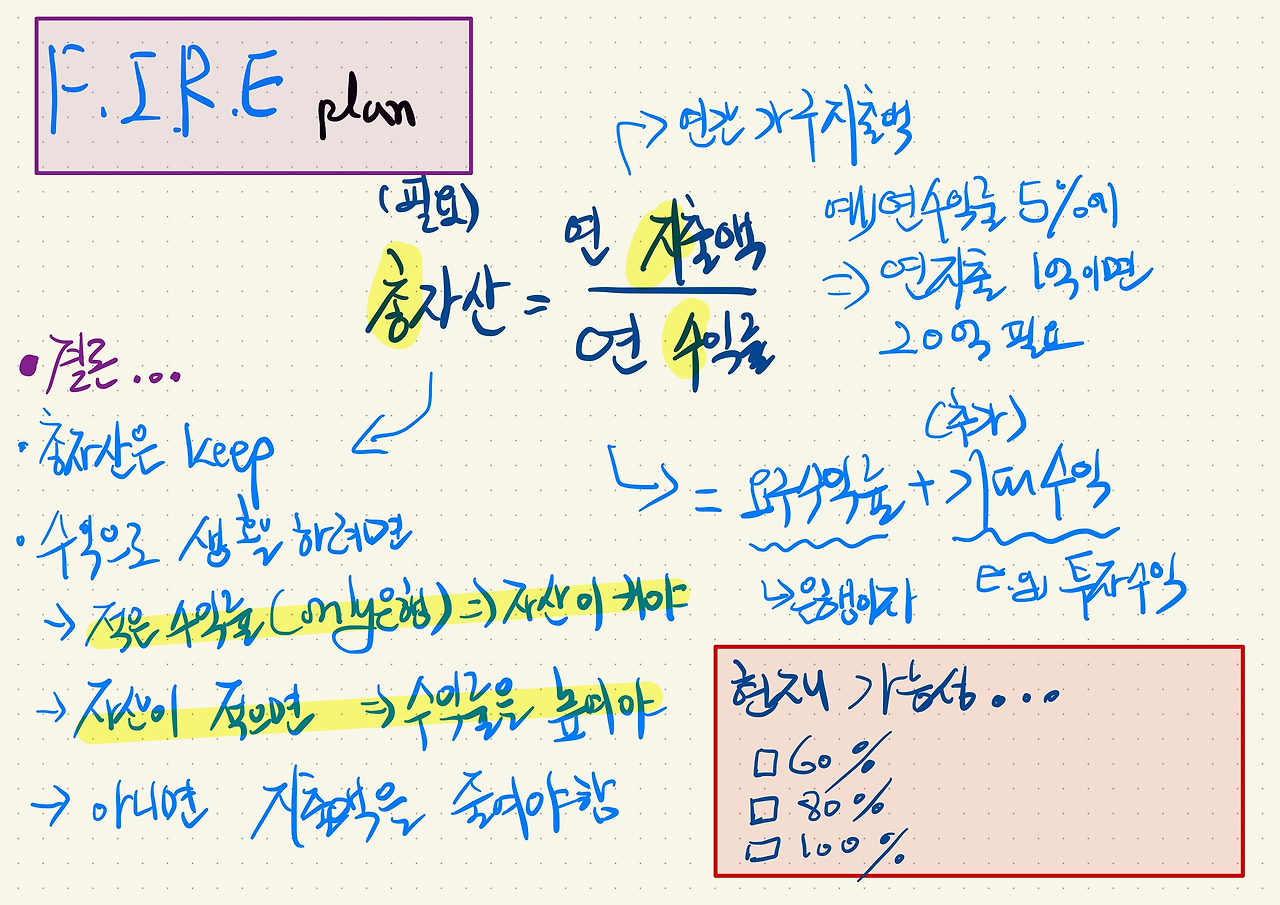 F.I.R.E plan
→ 연간 가구지출액
(필요)
총자산 = 연 지출액
연 수익률
예) 연수익률 5%에
⇒ 연지출 1억이면
20억 필요
→ = 요구수익률 + (추가) 기대수익
→ 은행이자
E.g) 투자수익
• 결론...
· 총자산은 keep
· 수익으로 생활하려면
→ 적은 수익률 (only은행) ⇒ 자산이 커야
→ 자산이 적으면 ⇒ 수익률을 높여야
→ 아니면 지출액을 줄여야함
현재 가능성...
□ 60%
□ 80%
□ 100%